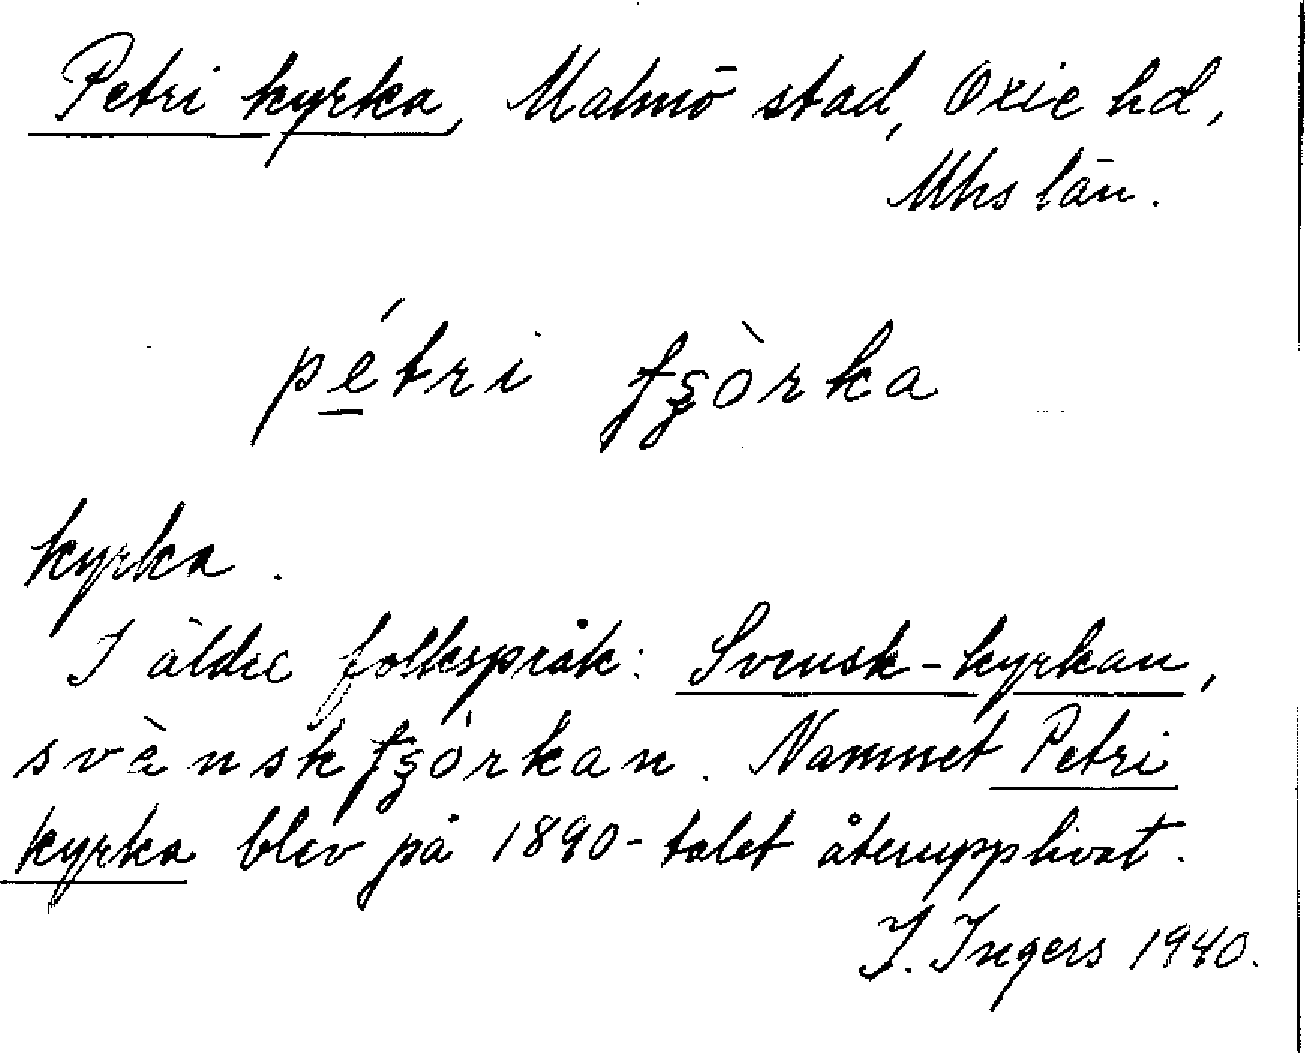 Petri kyrka, Malmö stad, Oxie hd,
Mhs län.
pétri tʒòrka
kyrka.
I äldre folkspråk: Svensk-kyrkan,
svànsktʒòrkan. Namnet Petri
kyrka blev på 1890-talet återupplivat.
I. Ingers 1940.